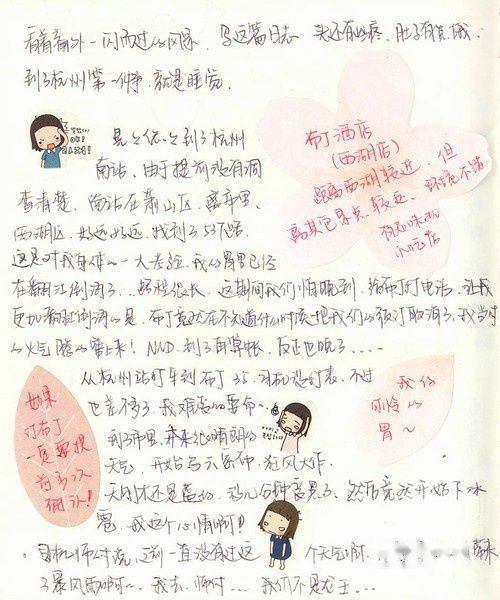 看着窗外一闪而过的风景，写这篇日志 头还有些疼，肚子有点饿
到了杭州第一件事，就是睡觉
晃晃悠悠到了杭州
南站，由于提前没有调
查清楚，南站在萧山区，离市里
西湖区，好远好远，找到了
这是对我身体一大考验，我的胃里已经
在翻江倒海了...路程很长，这期间我们怕晚到，给布丁打电话，让我
更加翻江倒海的是，布丁竟然在不知道什么时候把我们的预订取消了，我当时
的火气腾的窜上来！NND，到了再算帐，反正也晚了.....
布丁酒店
(西湖店)
距离西湖较近，但
离其它景点较远，环境不错
有美味的
小吃店
从杭州站打车到布丁35，司机没打表，不过
也差不多了，我难受的要命~
到了市里，本来比晴朗的
天气，开始乌云密布，狂风大作
天刚才还是蓝的，几分钟变黑了，然后竟然开始下冰
雹，我这个心情啊！！
如果
订布丁
一定要提
前多次
确认！
我的
可怜的
胃~
司机师傅说，这到一直没有过这个天气啊，
了暴风雨啊~，我去，师傅....我们不是龙王...